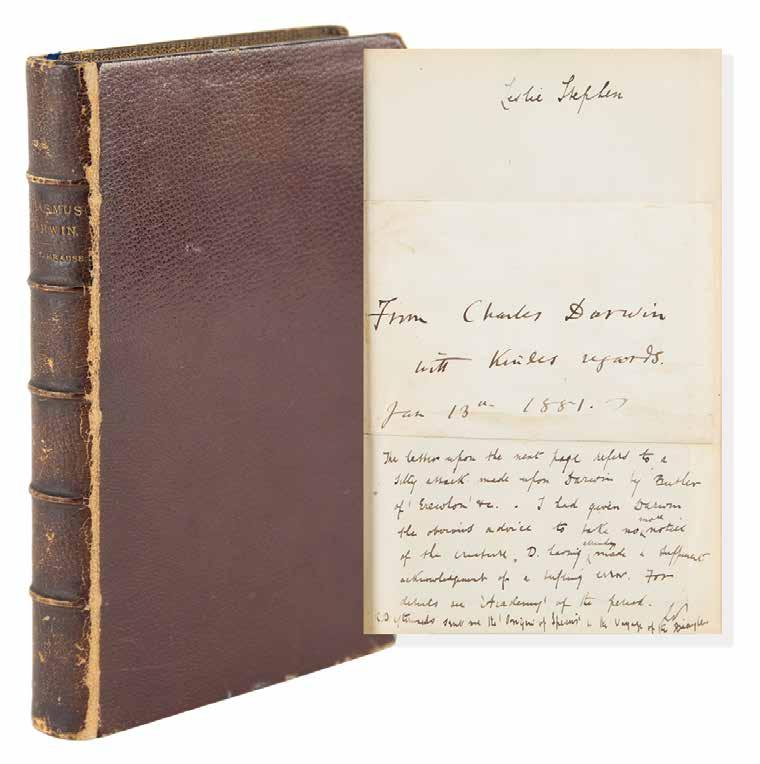 RASMUS
ARWIN.
KRAUSE
Leslie Stephen
From Charles Darwin
with Kindest regards.
Jan 13th 1881.
The letter upon the next page refers to a
silly attack made upon Darwin by Butler
of 'Erewhon' &c. I had given Darwin
the obvious advice to take no more notice
of the creature, D. having already made a sufficient
acknowledgment of a trifling error. For
details see 'Academy' of the period.
LS
C.D. afterwards sent me the 'Origin of Species' & the Voyage of the